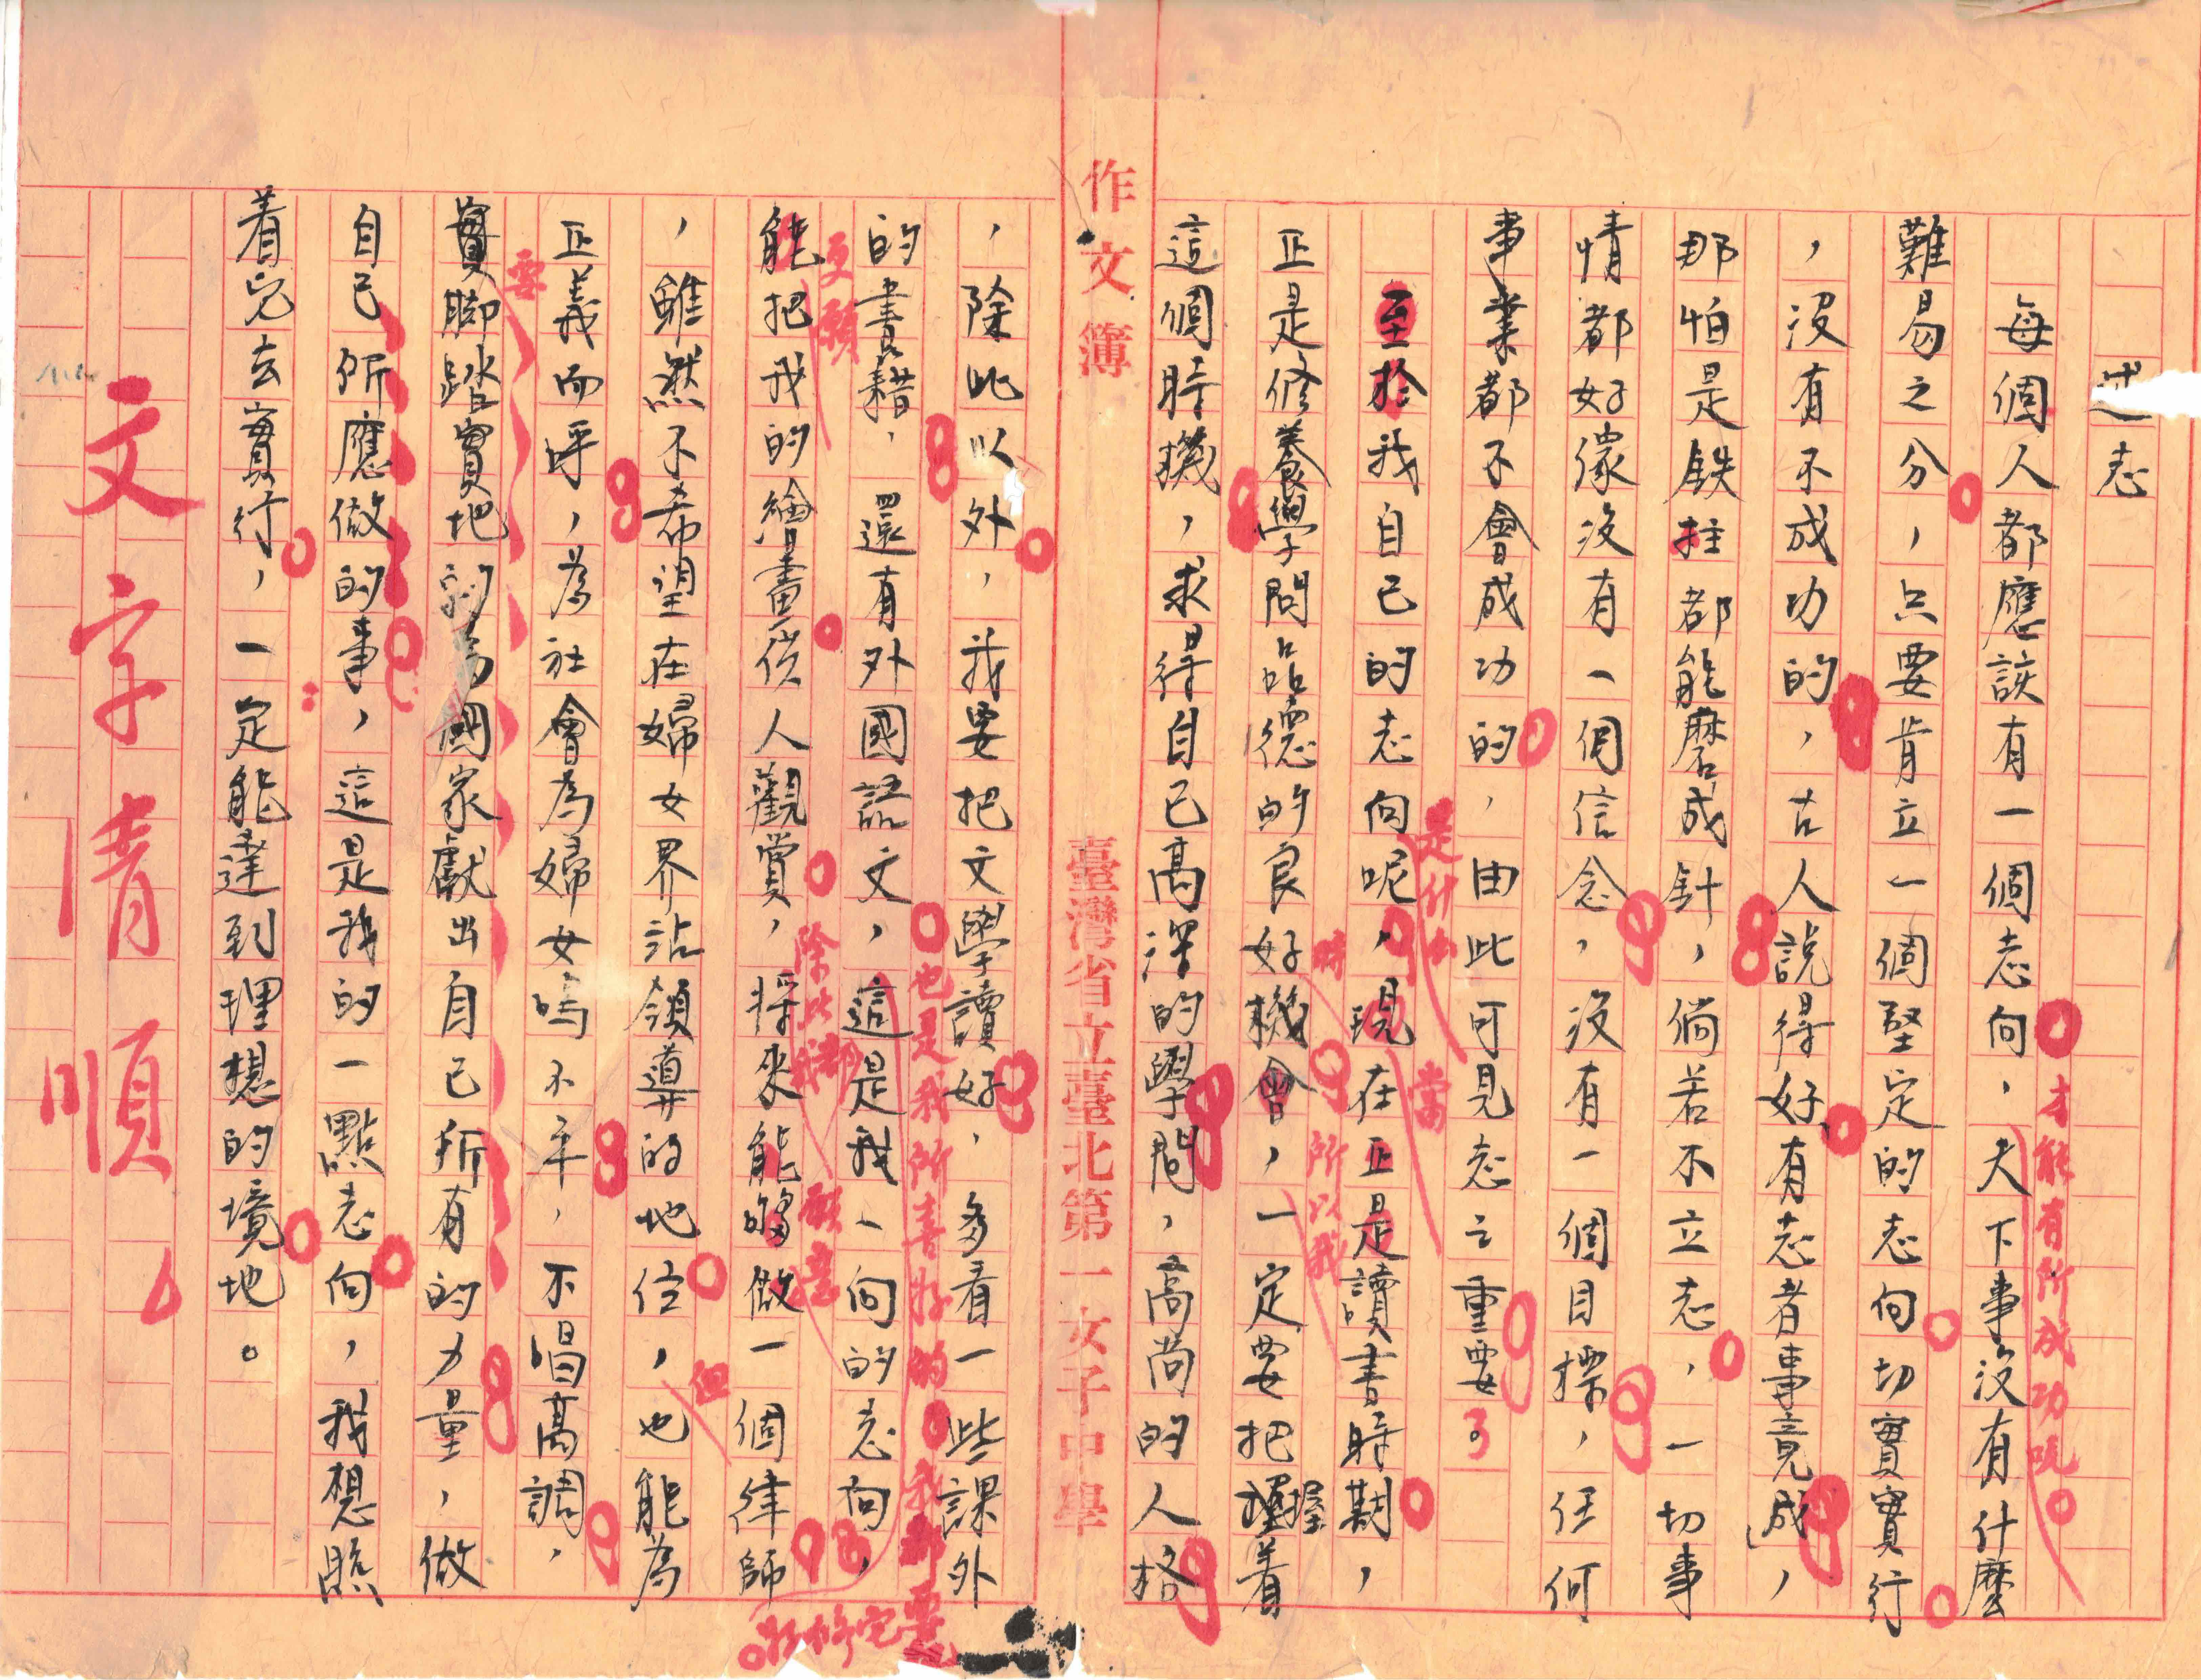 述志
每個人都應該有一個志向，天下事沒有什麼
才能有所成功呢。
難易之分，只要肯立一個堅定的志向切實實行
，沒有不成功的，古人說得好「有志者事竟成」，
那怕是鉄柱都能磨成針，倘若不立志，一切事
情都好像沒有一個信念，沒有一個目標，任何
事業都不會成功的，由此可見志之重要了
至於我自己的志向呢，現在正是讀書時期，
是什么
當
正是修養學問品德的良好機會，一定要把握着
時
所以我
這個時機，求得自己高深的學問，高尚的人格
作文簿
臺灣省立臺北第一女子中學
，除此以外，我要把文學讀好，多看一些課外
的書籍，還有外國語文，這是我一向的志向，
也是我所喜好的
我都要
研修完
能把我的繪畫供人觀賞，將來能夠做一個律師
更願
除此我都
願意
，雖然不希望在婦女界站領導的地位，也能為
但
正義而呼，為社會為婦女鳴不平，不唱高調，
實脚踏實地的為國家獻出自己所有的力量，做
要
自己所應做的事，這是我的一點志向，我想照
着它去實行，一定能達到理想的境地。
文字清順。